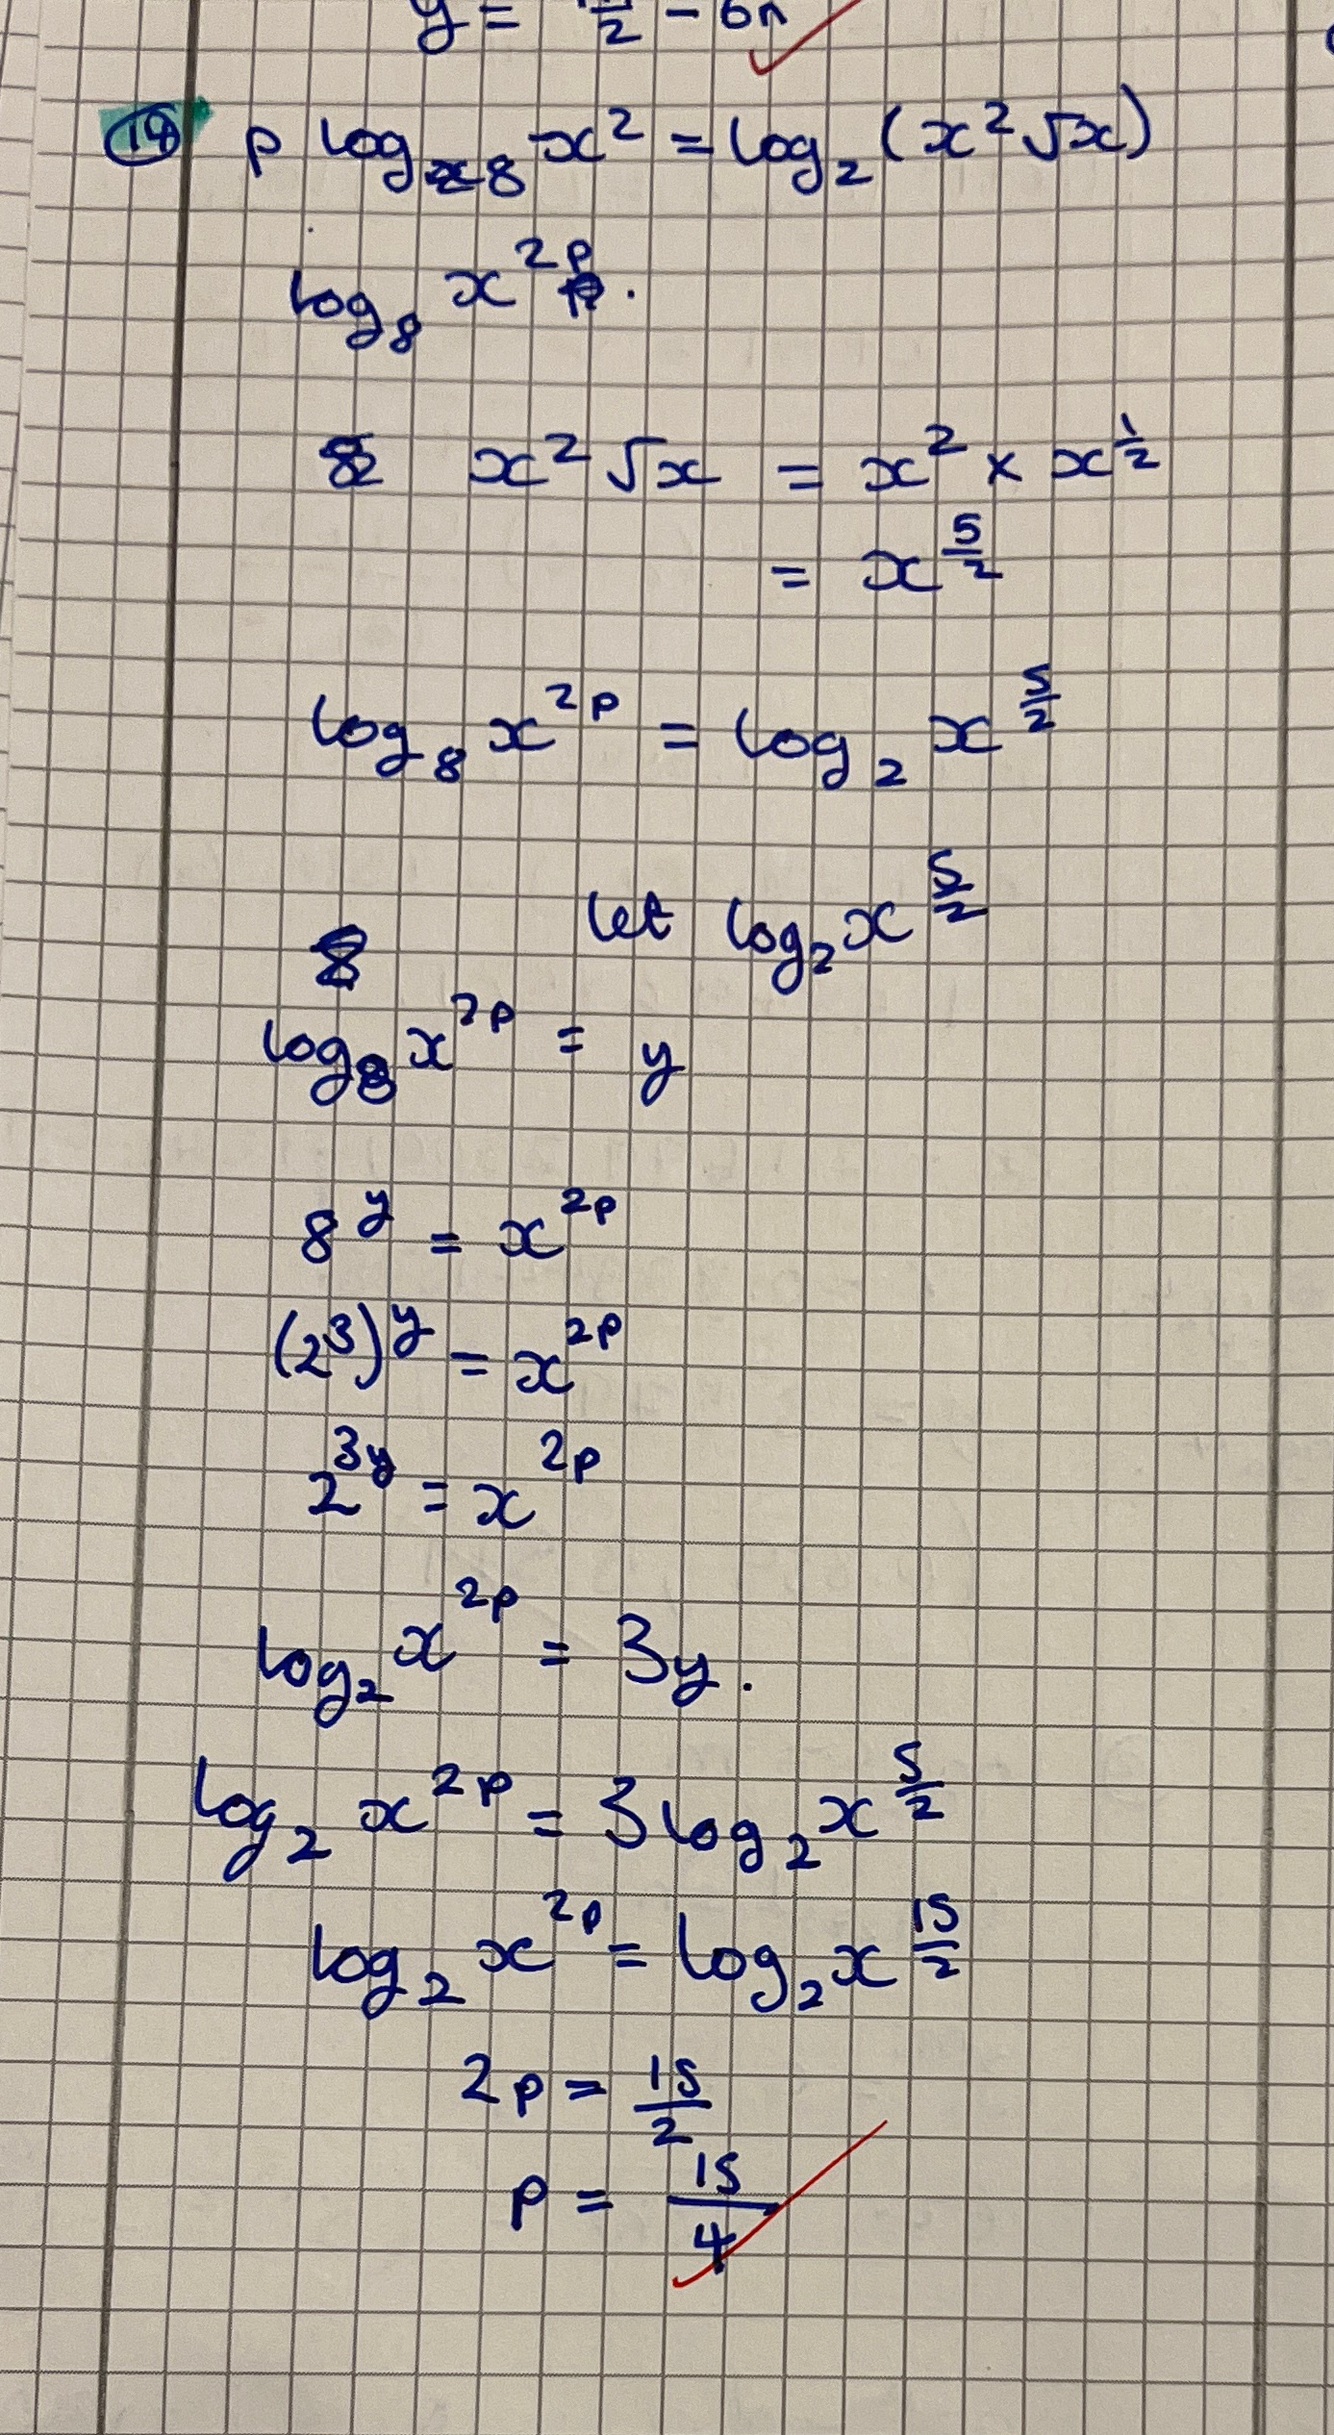 (14) p log₈ x² = log₂ (x²√x)
log₈ x²ᵖ.
x²√x = x² × x^(1/2)
= x^(5/2)
log₈ x^(2p) = log₂ x^(5/2)
let log₂ x^(5/2)
log₈ x^(2p) = y
8^y = x^(2p)
(2³)^y = x^(2p)
2^(3y) = x^(2p)
log₂ x^(2p) = 3y.
log₂ x^(2p) = 3 log₂ x^(5/2)
log₂ x^(2p) = log₂ x^(15/2)
2p = 15/2
p = 15/4